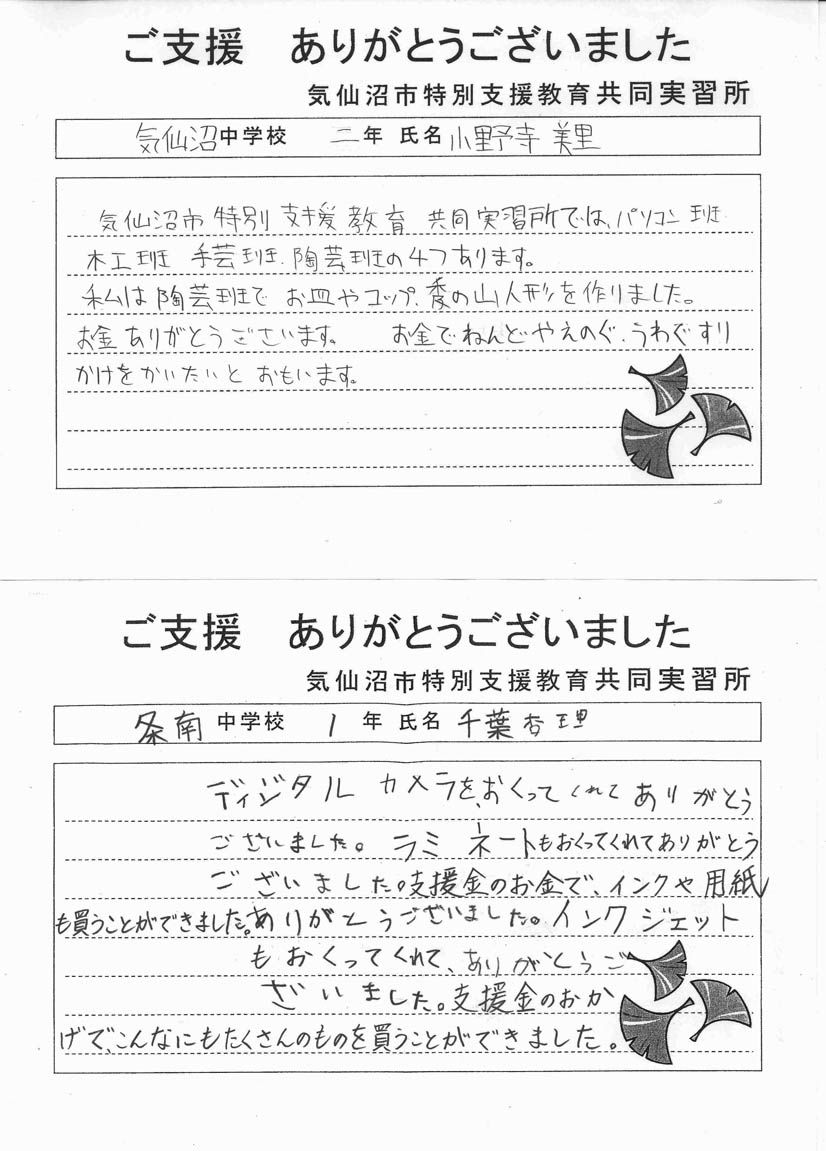 ご支援　ありがとうございました
気仙沼市特別支援教育共同実習所
気仙沼中学校　二年　氏名　小野寺 美里
気仙沼市 特別 支援 教育 共同実習所では、パソコン 班
木工班　手芸班、陶芸班の4つあります。
私は陶芸班で お皿やコップ、の山人形を作りました。
お金ありがとうございます。　お金でねんどやえのぐ、うわぐすり
かけをかいたいと おもいます。
ご支援　ありがとうございました
気仙沼市特別支援教育共同実習所
条南　中学校　1　年　氏名　千葉 杏理
ディジタル カメラを、おくってくれて ありがとう
ございました。ラミネートもおくってくれてありがとう
ございました。支援金のお金で、インクや用紙
も買うことができました。ありがとうございました。インクジェット
もおくってくれて、ありがとうご
ざいました。支援金のおか
げで、こんなにもたくさんのものを買うことができました。